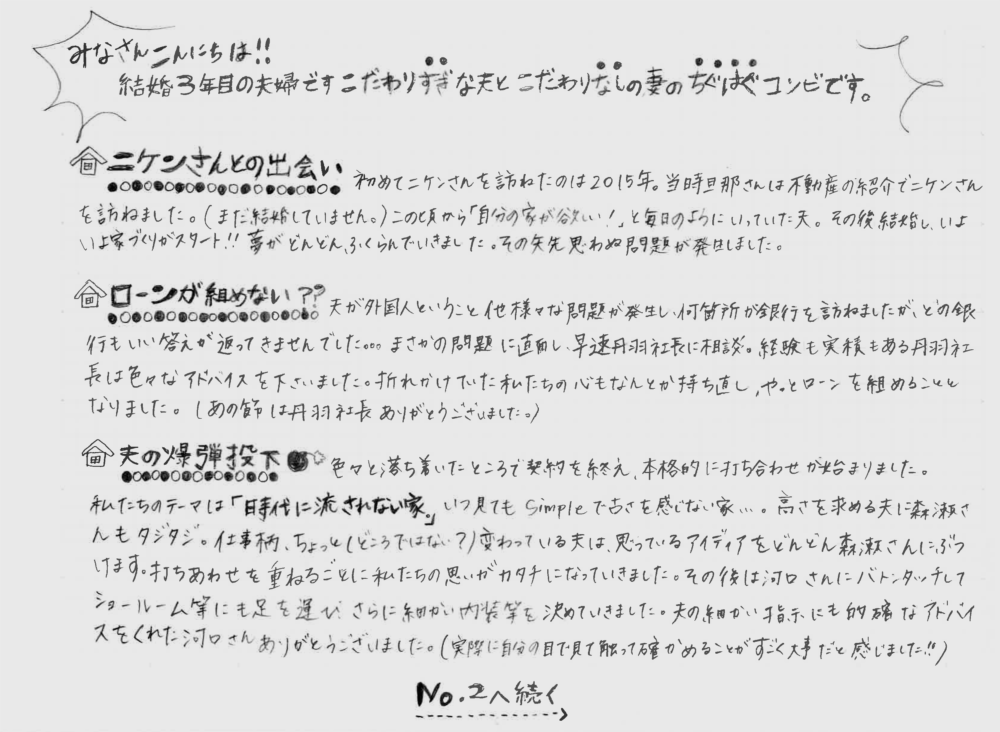 みなさんこんにちは!!
結婚3年目の夫婦ですこだわりすぎな夫とこだわりなしの妻のちぐはぐコンビです。
ニケンさんとの出会い 初めてニケンさんを訪ねたのは2015年。当時旦那さんは不動産の紹介でニケンさん
を訪ねました。(まだ結婚していません。)この頃から「自分の家が欲しい!」と毎日のようにいっていた夫。その後結婚し、いよ
いよ家づくりがスタート!!夢がどんどんふくらんでいきました。その矢先思わぬ問題が発生しました。
ローンが組めない?? 夫が外国人ということ他様々な問題が発生し、何箇所か銀行を訪ねましたが、どの銀
行もいい答えが返ってきませんでした。。。まさかの問題に直面し、早速丹羽社長に相談。経験も実積もある丹羽社
長は色々なアドバイスを下さいました。折れかけていた私たちの心もなんとか持ち直し、やっとローンを組めることと
なりました。(あの節は丹羽社長ありがとうございました。)
夫の爆弾投下 色々と落ち着いたところで契約を終え、本格的に打ち合わせが始まりました。
私たちのテーマは「時代に流されない家。」いつ見てもSimpleで古さを感じない家…。高さを求める夫に森瀬さ
んもタジタジ。仕事柄、ちょっと(どころではない?)変わっている夫は、思っているアイディアをどんどん森瀬さんにぶつ
けます。打ちあわせを重ねるごとに私たちの思いがカタチになっていきました。その後は河口さんにバトンタッチして
ショールーム等にも足を運び、さらに細かい内装等を決めていきました。夫の細かい指示にも的確なアドバイ
スをくれた河口さんありがとうございました。(実際に自分の目で見て触って確かめることがすごく大事だと感じました!!)
No.2へ続く